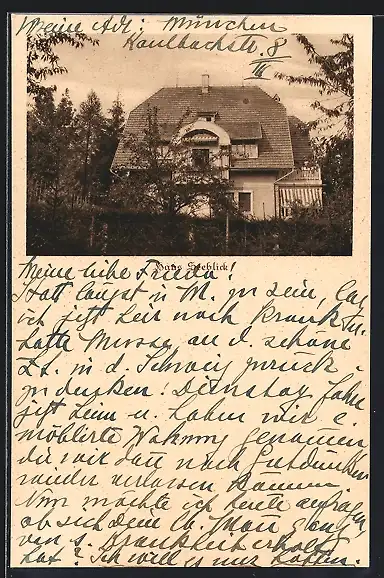 Meine Adr: München
Kaulbachstr. 8
III
Haus Seeblick
Meine liebe Frieda!
Statt längst in M. zu sein, lag
ich jetzt hier noch krank u.
hatte Musse, an d. schöne
Zt. in d. Schweiz zurück
zu denken! Dienstag fahre
jetzt heim u. haben wir e.
möblierte Wohnung genommen
die wir dort nach Gutdünken
wieder verlassen können
Nun möchte ich heute anfragen,
ob sich dein lb. Mann ganz
von s. Krankheit erholt
hat? Ich will es nur hoffen.